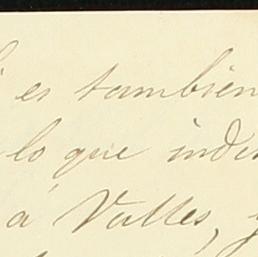 es tambien
lo que inde
á Valles, y